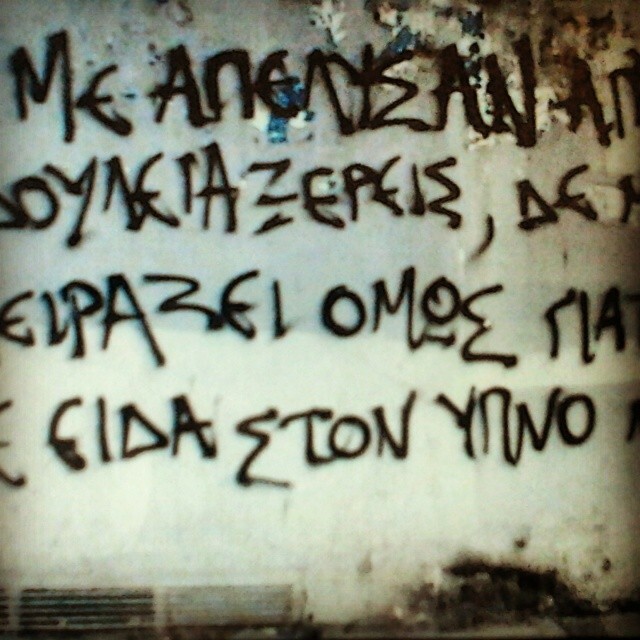 ΜΕ ΑΠΕΛΥΣΑΝ ΑΠ
ΔΟΥΛΕΙΑ ΞΕΡΕΙΣ, ΔΕ
ΕΙΡΑΖΕΙ ΟΜΩΣ ΓΙΑΤ
Ε ΕΙΔΑ ΣΤΟΝ ΥΠΝΟ